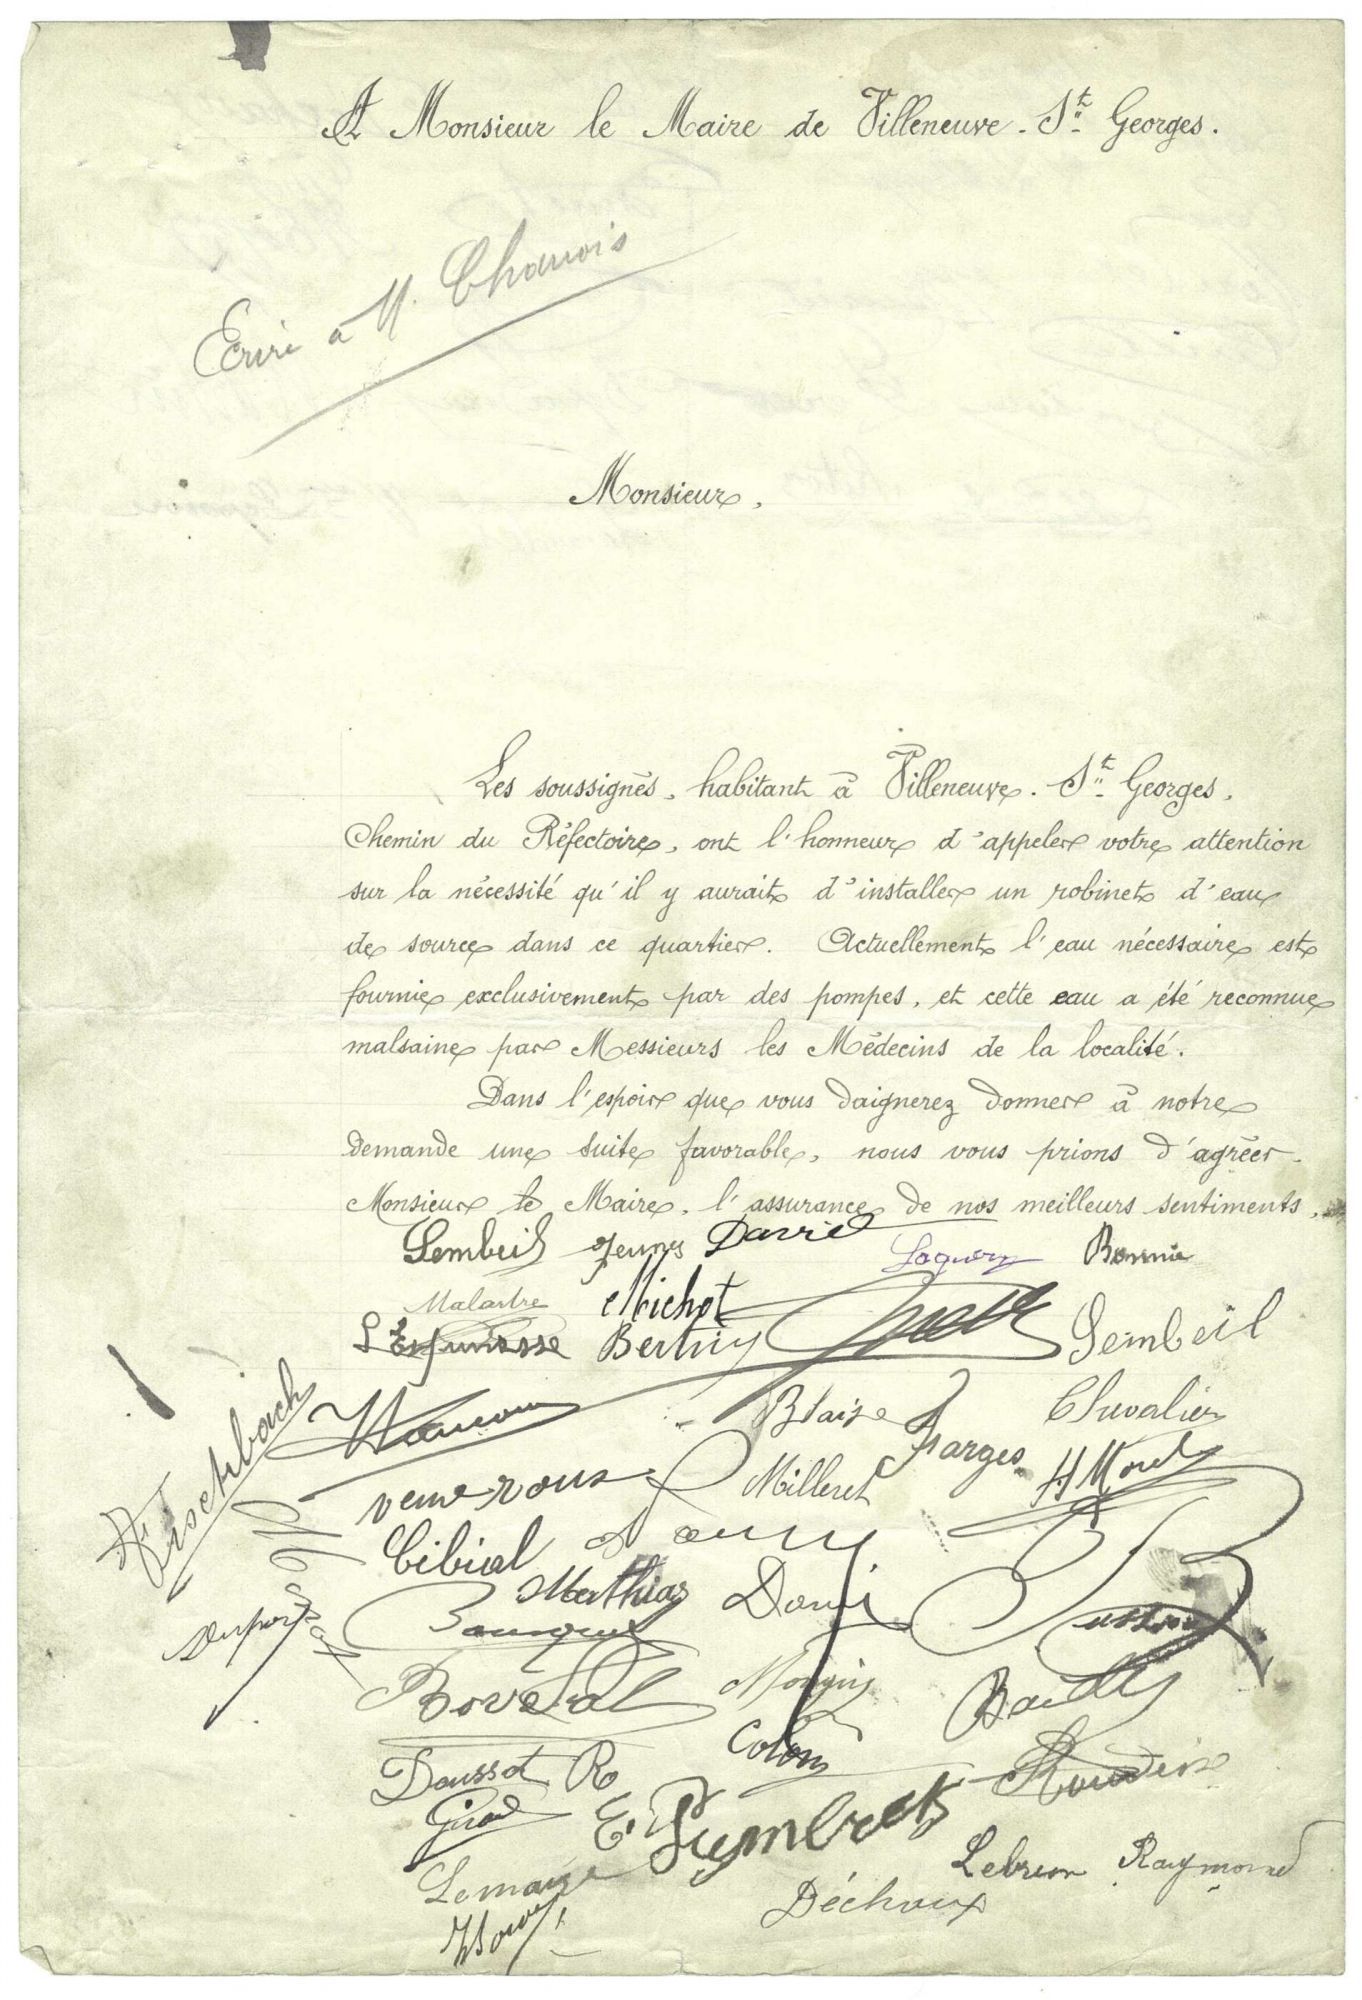 A Monsieur le Maire de Villeneuve-St Georges.
Ecrire à M. Chanvois
Monsieur,
Les soussignés, habitant à Villeneuve-St Georges,
Chemin du Réfectoire, ont l'honneur d'appeler votre attention
sur la nécessité qu'il y aurait d'installer un robinet d'eau
de source dans ce quartier. Actuellement l'eau nécessaire est
fournie exclusivement par des pompes, et cette eau a été reconnue
malsaine par Messieurs les Médecins de la localité.
Dans l'espoir que vous daignerez donner à notre
demande une suite favorable, nous vous prions d'agréer
Monsieur le Maire, l'assurance de nos meilleurs sentiments.
Sembeil Jeunes David Bonnie
Malartre Michot
Bertuy Sembeil
Blaise Farges Chevalier
Fischbach
Milleret
Cibial
Mathias
Dupont
Mongin Bailly
Doussot R Colom
Girod E.
Lemaire Lebrun Raymond
Déchoux